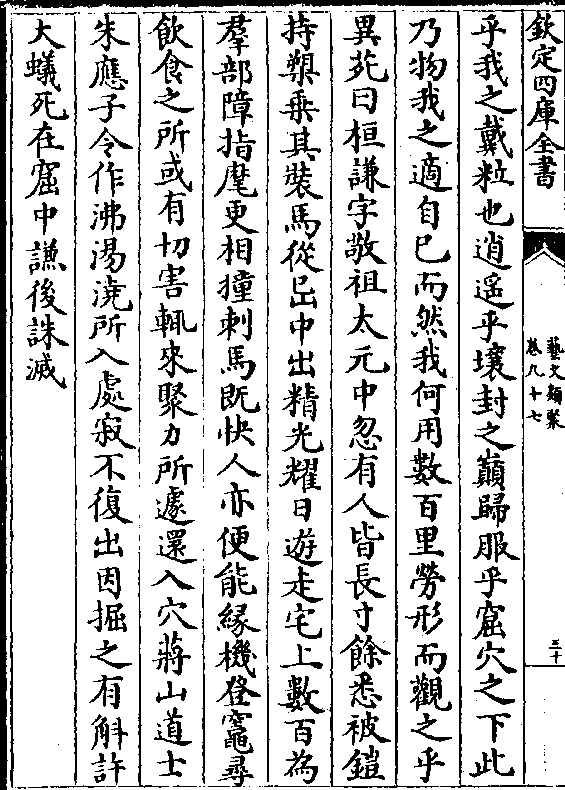 欽定四庫全書
藝文類聚
卷八十七
三十
乎我之戴粒也逍遥乎壤封之巔歸服乎窟穴之下此
乃物我之適自已而然我何用數百里勞形而觀之乎
異苑曰桓謙字敬祖太元中忽有人皆長寸餘悉被鎧
持槊乗其裝馬從臽中出精光耀日遊走宅上數百為
羣部障指麾更相撞刺馬既快人亦便能縁機登竈尋
飲食之所或有切害輒來聚力所遽還入穴蔣山道士
朱應子令作沸湯澆所入處寂不復出因掘之有斛許
大蟻死在窟中謙後誅滅